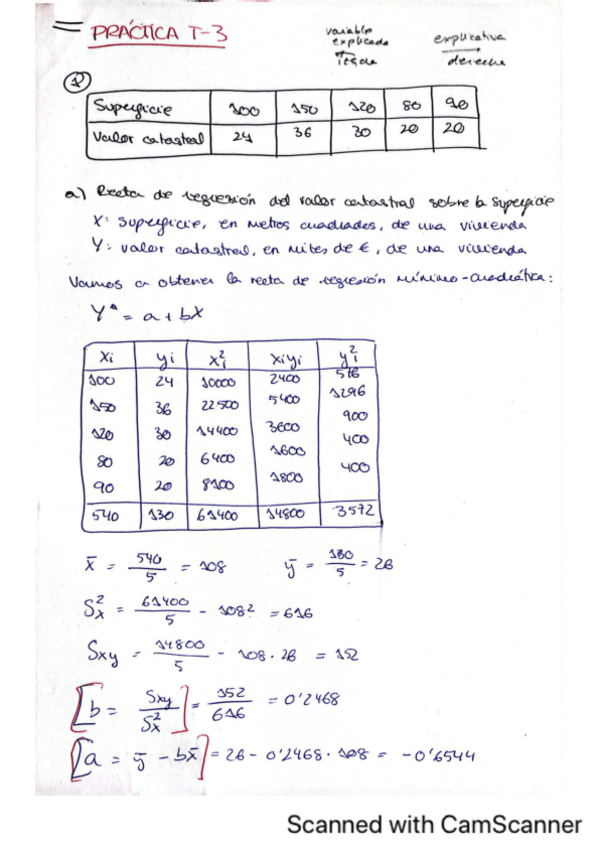 PRÁCTICA T-3
variable explicada explicativa
derecha
1
Superficie 100 150 120 80 90
Valor catastral 24 36 30 20 20
a) Recta de regresión del valor catastral sobre la superficie
X: Superficie, en metros cuadrados, de una vivienda
Y: valor catastral, en miles de €, de una vivienda
Vamos a obtener la recta de regresión mínimo-cuadrática:
Y* = a + bX
xi yi xi² xiyi yi²
100 24 10000 2400 576
150 36 22500 5400 1296
120 30 14400 3600 900
80 20 6400 1600 400
90 20 8100 1800 400
540 130 61400 14800 3572
x̄ = 540/5 = 108 ȳ = 130/5 = 26
Sx² = 61400/5 - 108² = 616
Sxy = 14800/5 - 108·26 = 152
[b = Sxy/Sx²] = 152/616 = 0'2468
[a = ȳ - bx̄] = 26 - 0'2468·108 = -0'6544
Scanned with CamScanner